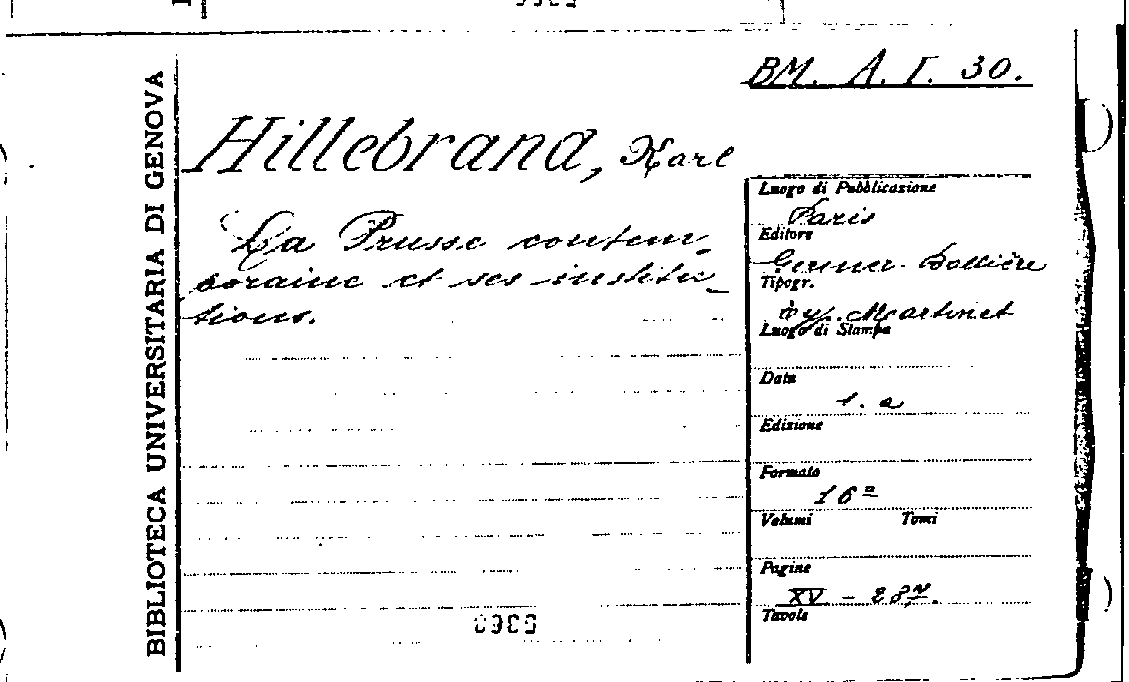 BM. A. I. 30.
BIBLIOTECA UNIVERSITARIA DI GENOVA
Hillebrand, Karl
La Prusse contem-
poraine et ses institu-
tions.
Luogo di Pubblicazione
Paris
Editore
Germer-Baillière
Tipogr.
Typ. Martinet
Luogo di Stampa
Data
s. a
Edizione
Formato
16º
Volumi Tomi
Pagine
XV -
Tavole